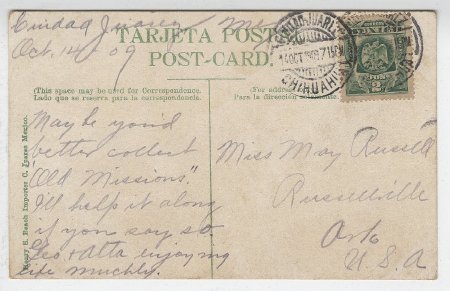 Ciudad Juarez Mex
Oct. 14 09
TARJETA POSTAL
POST-CARD.
This space may be used for Correspondence.
Lado que se reserva para la correspondencia.
For
Para la dirección
CIUDAD JUAREZ
14 OCT 1909
CHIHUAHUA
2
Henry S. Beach Importer C. Juarez Mexico.
Maybe you'd
better collect
"Old Missions."
I'll help it along
if you say so.
Geo & Atta enjoying my
life muchly.
Miss May Russell
Russellville
Ark
U.S.A